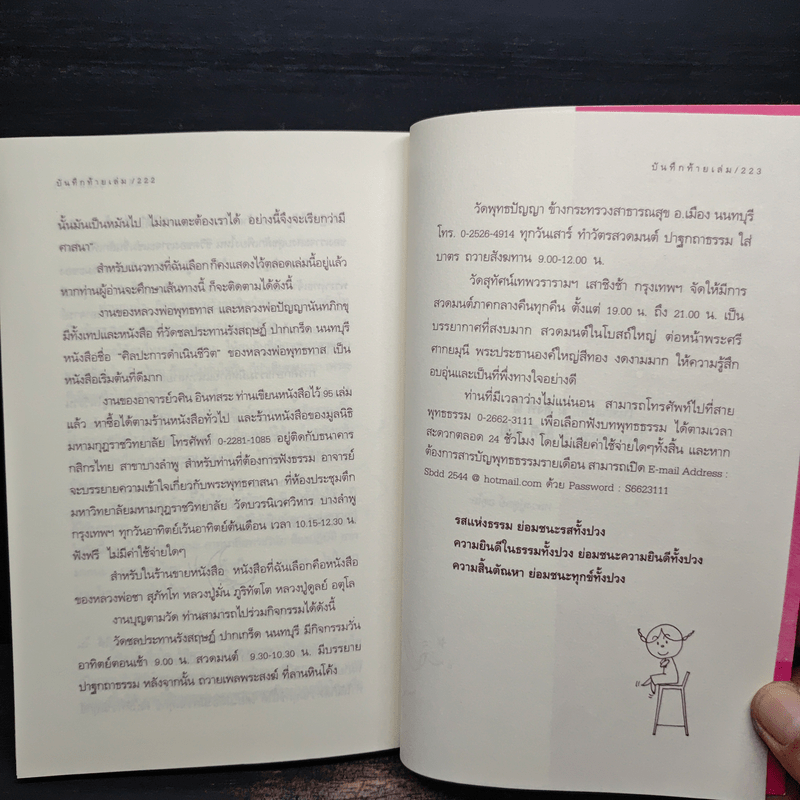 บันทึกท้ายเล่ม/222
นั้นมันเป็นหมันไป ไม่มาแตะต้องเราได้ อย่างนี้จึงจะเรียกว่ามี
ศาสนา"
สำหรับแนวทางที่ฉันเลือก ก็คงแสดงไว้ตลอดเล่มนี้อยู่แล้ว
หากท่านผู้อ่านจะศึกษาเส้นทางนี้ ก็จะติดตามได้ดังนี้
งานของหลวงพ่อพุทธทาส และหลวงพ่อปัญญานันทภิกขุ
มีทั้งเทปและหนังสือ ที่วัดชลประทานรังสฤษฎ์ ปากเกร็ด นนทบุรี
หนังสือชื่อ "ศิลปะการดำเนินชีวิต" ของหลวงพ่อพุทธทาส เป็น
หนังสือเริ่มต้นที่ดีมาก
งานของอาจารย์วศิน อินทสระ ท่านเขียนหนังสือไว้ 95 เล่ม
แล้ว หาซื้อได้ตามร้านหนังสือทั่วไป และร้านหนังสือของมูลนิธิ
มหามกุฎราชวิทยาลัย โทรศัพท์ 0-2281-1085 อยู่ติดกับธนาคาร
กสิกรไทย สาขาบางลำพู สำหรับท่านที่ต้องการฟังธรรม อาจารย์
จะบรรยายความเข้าใจเกี่ยวกับพระพุทธศาสนา ที่ห้องประชุมตึก
มหาวิทยาลัยมหามกุฎราชวิทยาลัย วัดบวรนิเวศวิหาร บางลำพู
กรุงเทพฯ ทุกวันอาทิตย์เว้นอาทิตย์ต้นเดือน เวลา 10.15-12.30 น.
ฟังฟรี ไม่มีค่าใช้จ่ายใดๆ
สำหรับในร้านขายหนังสือ หนังสือที่ฉันเลือกคือหนังสือ
ของหลวงพ่อชา สุภัทโท หลวงปู่มั่น ภูริทัตโต หลวงปู่ดูลย์ อตุโล
งานบุญตามวัด ท่านสามารถไปร่วมกิจกรรมได้ดังนี้
วัดชลประทานรังสฤษฎ์ ปากเกร็ด นนทบุรี มีกิจกรรมวัน
อาทิตย์ตอนเช้า 9.00 น. สวดมนต์ 9.30-10.30 น. มีบรรยาย
ปาฐกถาธรรม หลังจากนั้น ถวายเพลพระสงฆ์ ที่ลานหินโค้ง
บันทึกท้ายเล่ม/223
วัดพุทธปัญญา ข้างกระทรวงสาธารณสุข อ.เมือง นนทบุรี
โทร. 0-2526-4914 ทุกวันเสาร์ ทำวัตรสวดมนต์ ปาฐกถาธรรม ใส่
บาตร ถวายสังฆทาน 9.00-12.00 น.
วัดสุทัศน์เทพวรารามฯ เสาชิงช้า กรุงเทพฯ จัดให้มีการ
สวดมนต์ภาคกลางคืนทุกคืน ตั้งแต่ 19.00 น. ถึง 21.00 น. เป็น
บรรยากาศที่สงบมาก สวดมนต์ในโบสถ์ใหญ่ ต่อหน้าพระศรี
ศากยมุนี พระประธานองค์ใหญ่สีทอง งดงามมาก ให้ความรู้สึก
อบอุ่นและเป็นที่พึ่งทางใจอย่างดี
ท่านที่มีเวลาว่างไม่แน่นอน สามารถโทรศัพท์ไปที่สาย
พุทธธรรม 0-2662-3111 เพื่อเลือกฟังบทพุทธธรรม ได้ตามเวลา
สะดวกตลอด 24 ชั่วโมง โดยไม่เสียค่าใช้จ่ายใดๆทั้งสิ้น และหาก
ต้องการสารบัญพุทธธรรมรายเดือน สามารถเปิด E-mail Address :
Sbdd 2544 @ hotmail.com ด้วย Password : S6623111
รสแห่งธรรม ย่อมชนะรสทั้งปวง
ความยินดีในธรรมทั้งปวง ย่อมชนะความยินดีทั้งปวง
ความสิ้นตัณหา ย่อมชนะทุกข์ทั้งปวง